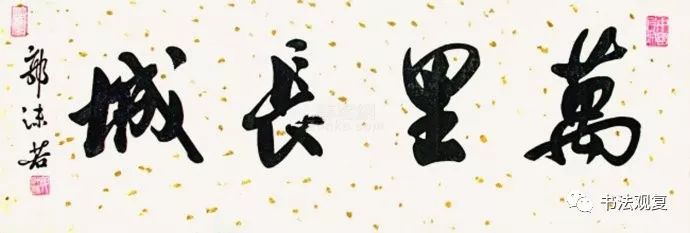 萬里長城
郭沫若
书法观复